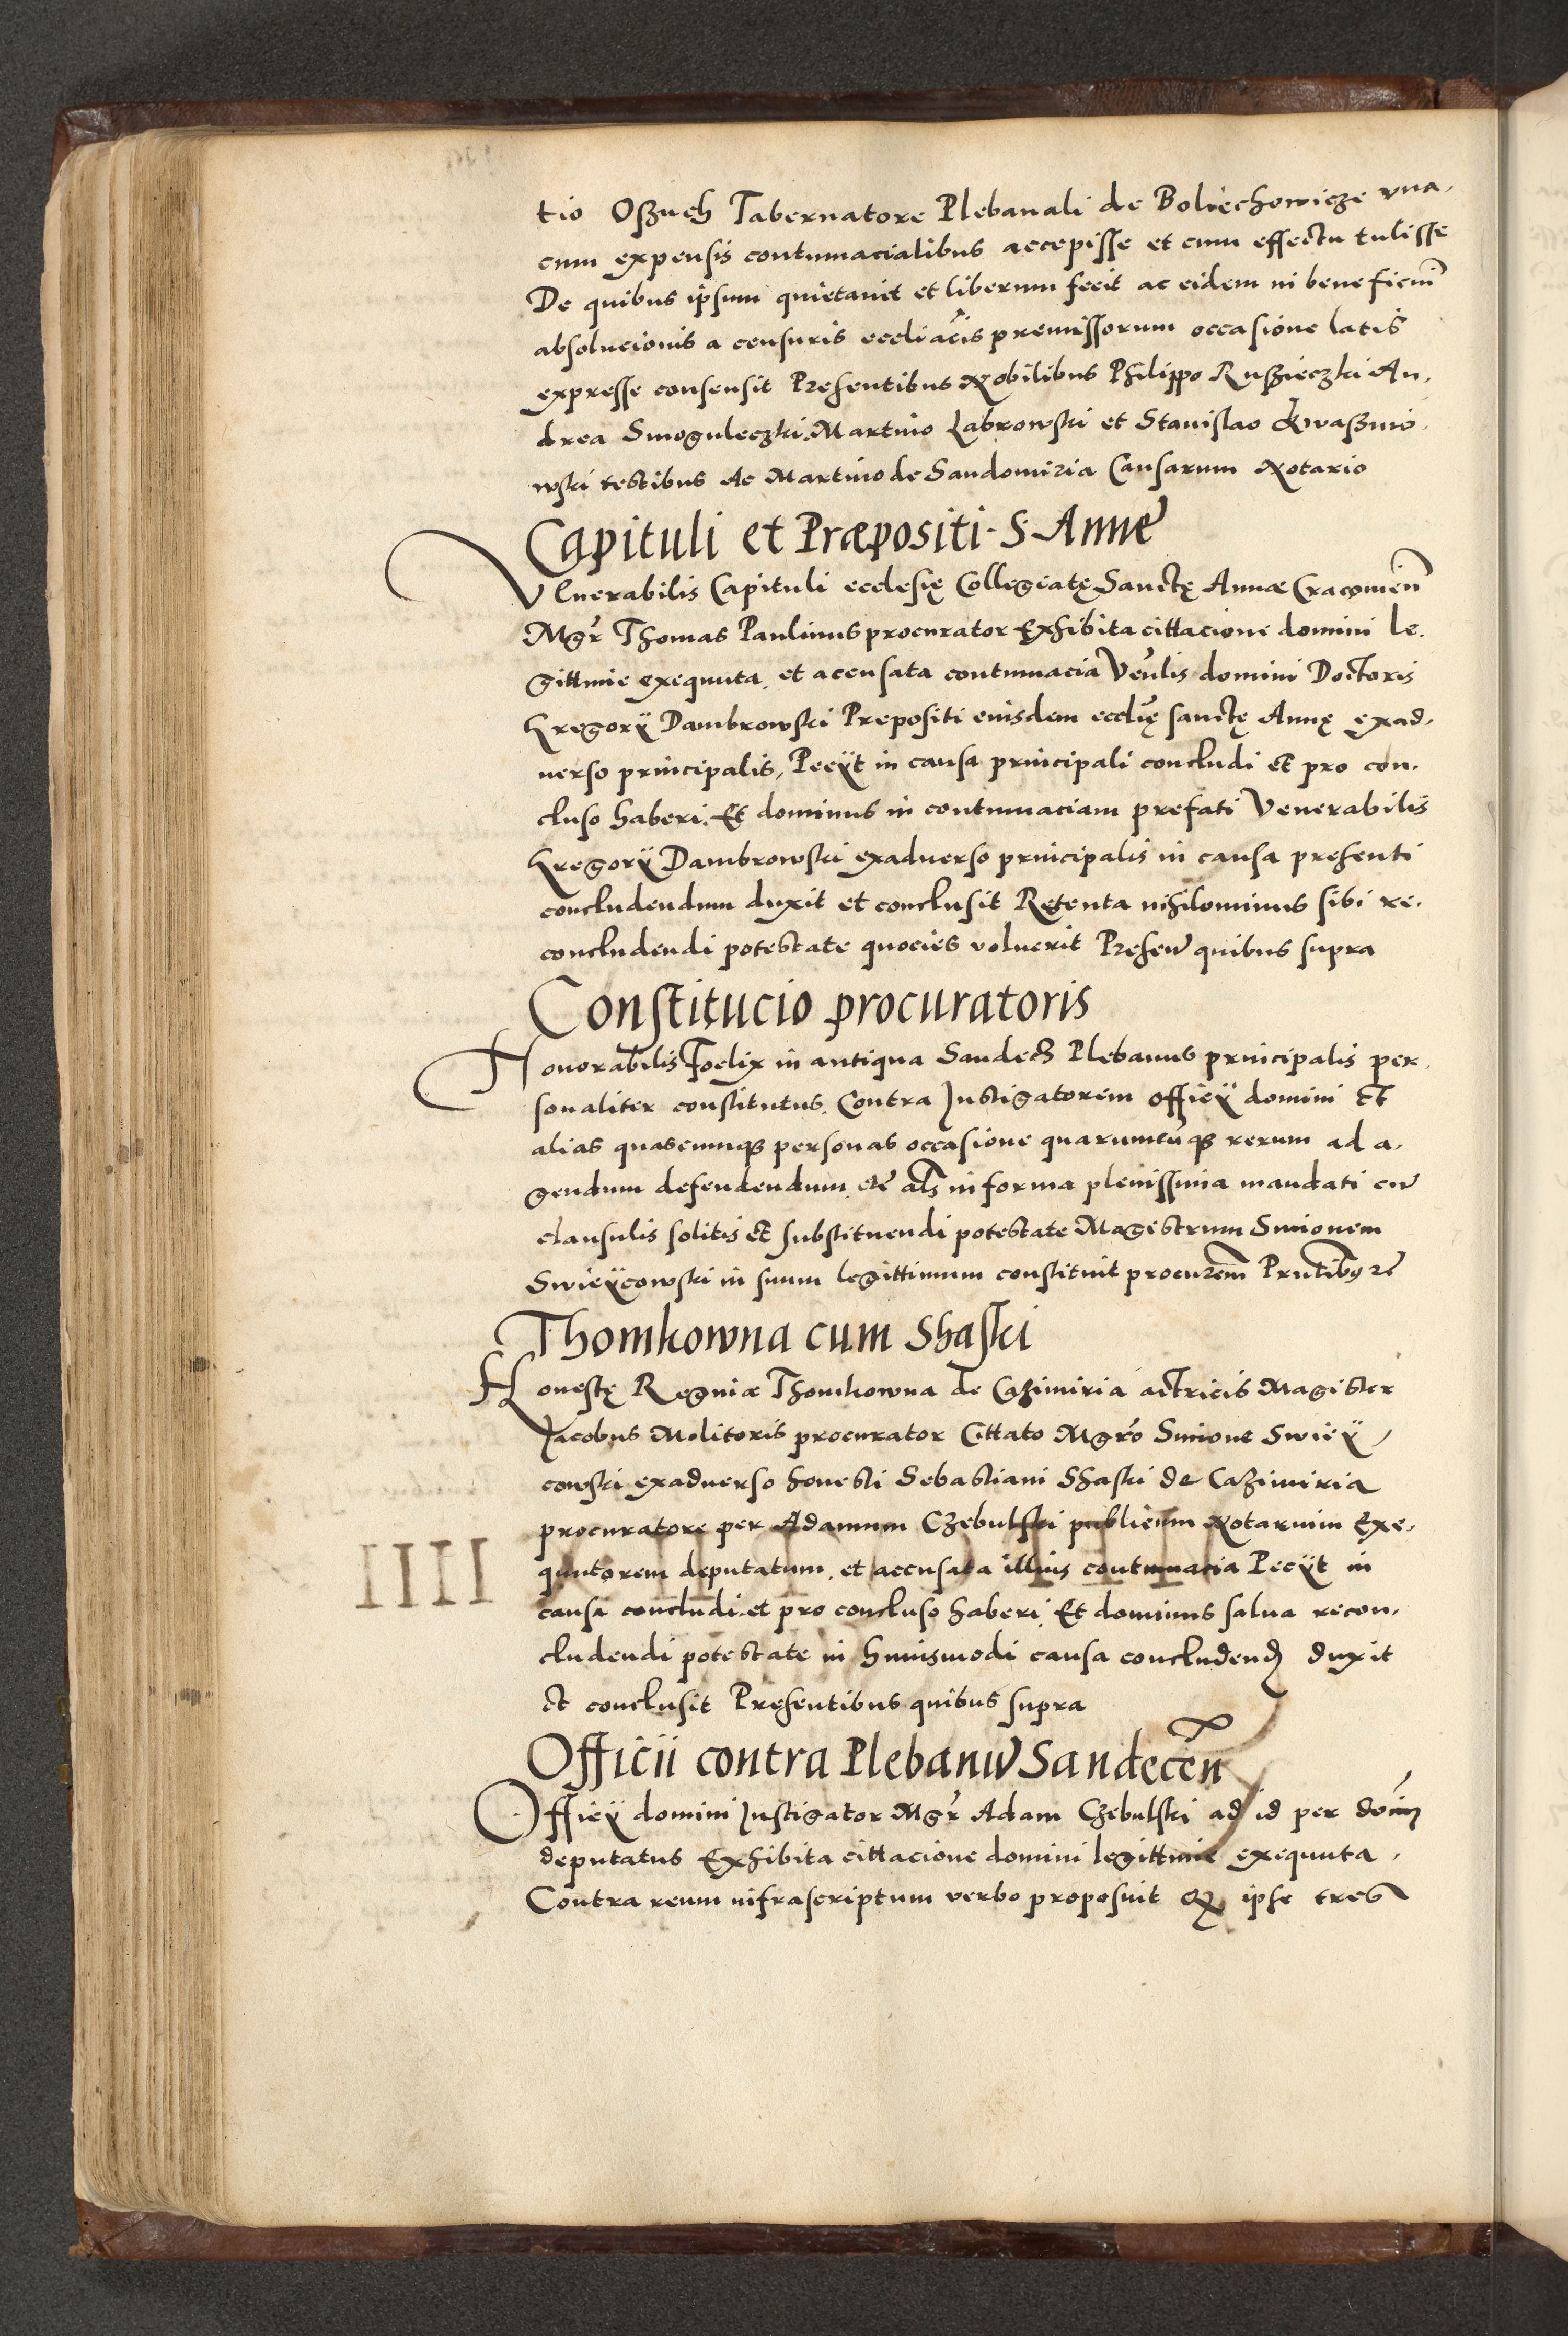 tio Oszuch Tabernatore Plebanali de Bolechowicze vna
cum expensis contumacialibus accepisse et cum effectu tulisse
De quibus ipsum quietauit et liberum fecit ac eidem in beneficiu͂
absolucionis a censuris eccliacis premissorum occasione latis
expresse consensit Presentibus Nobilibus Philippo Ruszieczki An,
drea Smoguleczki Martino Labrowski et Stanislao Kwaszmo,
wski testibus ac Martino de Sandomiria Causarum Notario
Capituli et Præpositi S. Anne
Venerabilis Capituli ecclesię Collegiatę Sanctę Annæ Cracouien͂
Mgr͂ Thomas Paulinus procurator Exhibita cittacione domini le,
gittime exequuta, et acensata contumacia Ven͂lis domini Doctoris
Gregorÿ Dambrowski Prepositi eiusdem eccl͂ię sanctę Annę exad,
uerso principalis, Peciit in causa principali concludi et pro con,
cluso haberi. Et dominus in contumaciam prefati Venerabilis
Gregorÿ Dambrowski exaduerso principalis in causa presenti
concludendum duxit et conclusit Retenta nihilominus sibi re,
concludendi potestate quocies voluerit Presen͂ quibus supra
Constitucio procuratoris
Honorabilis Foelix in antiqua Sandecz Plebanus principalis per,
sonaliter constitutus, Contra Instigatorem officÿ domini et
alias quascumqꝫ personas occasione quarumcu͂qꝫ rerum ad a,
gendum defendendum etc͂ al͂s in forma plenissima mandati cu͂
clausulis solitis et substituendi potestate Magistrum Simonem
Swieÿcowski in suum legittimum constituit procurem͂ Prntibꝰ rͤ
Thomkowna cum Shaski
Honestę Reginæ Thomkowna de Cazimiria actricis Magister
Jacobus Molitoris procurator Cittato Mgr͂o Simone Swieÿ
cowski exaduerso honesti Sebastiani Shaski de Cazimiria
procuratore per Adamum Czebulski publicum Notarium Exe,
quutorem deputatum, et accusata illius contumacia Pecÿt in
IIII
causa concludi et pro concluso haberi, Et dominus salua recon,
cludendi potestate in huiusmodi causa concludenꝺ duxit
et conclusit Presentibus quibus supra
Officii contra Plebanu͂ Sandecen͂
Officÿ domini Instigator Mgr͂ Adam Czebulski ad id per dom͂
deputatus Exhibita cittacione domini legittimie exequuta,
Contra reum infrascriptum verbo proposuit Qꝫ ipse tres